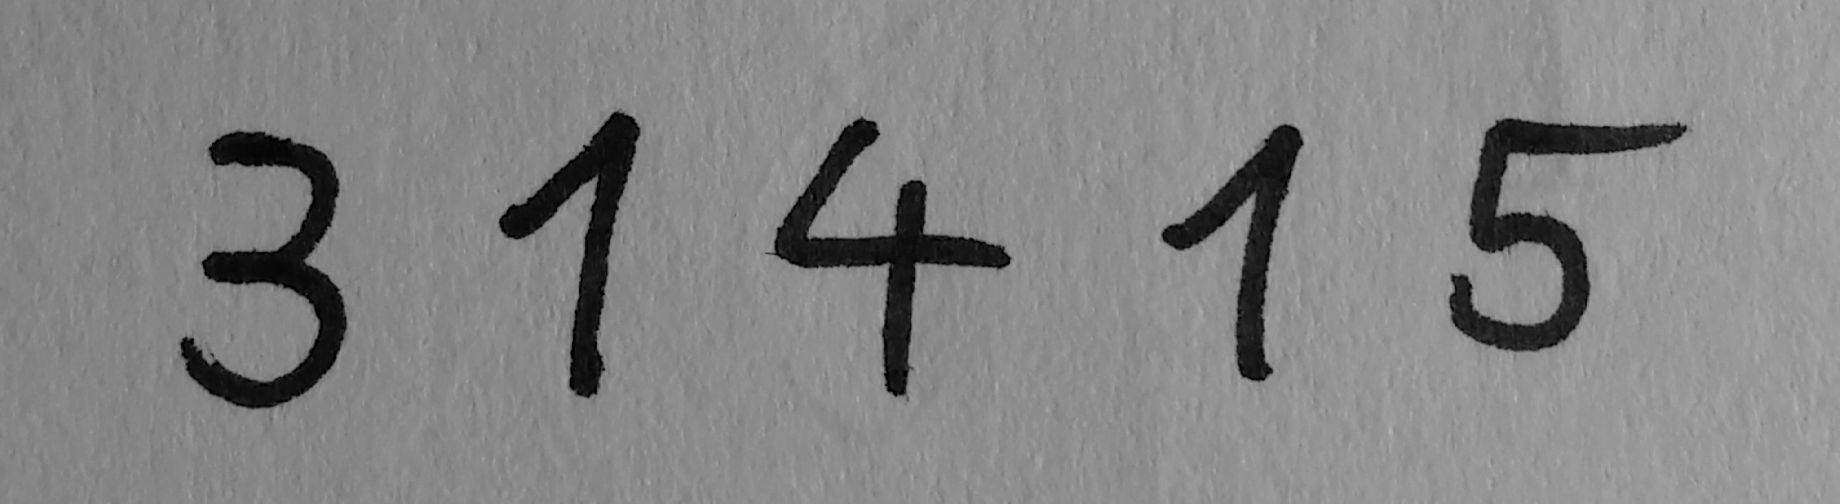 3 1 4 1 5